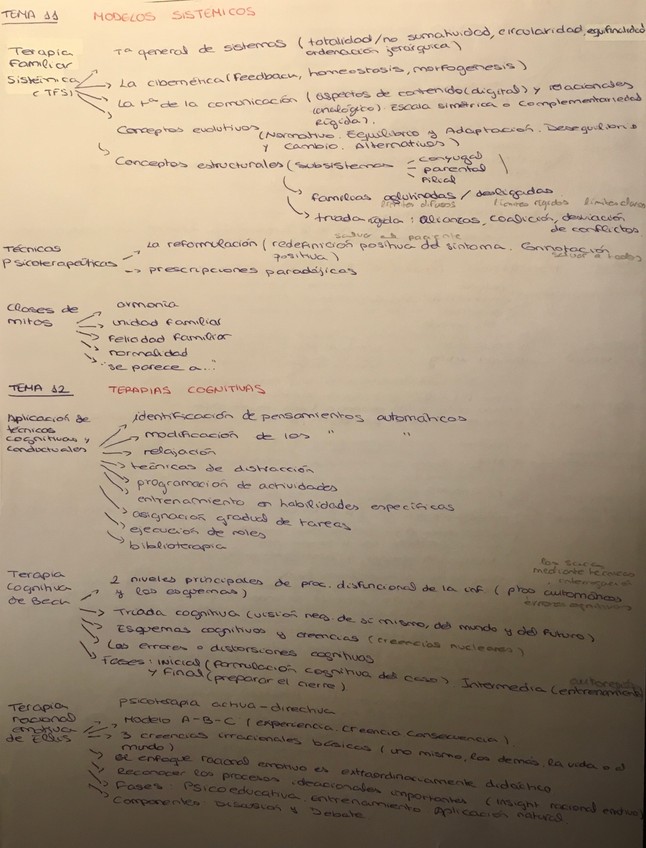 TEMA 11 MODELOS SISTÉMICOS
Terapia Familiar Sistémica (TFS)
Tª general de sistemas (totalidad/no sumatividad, circularidad, equifinalidad
ordenación jerárquica)
La cibernética (feedback, homeostasis, morfogenesis)
La tª de la comunicación (aspectos de contenido (digital) y relacionales
(analógico). Escala simétrica o complementariedad
rígida).
Conceptos evolutivos (Normativo. Equilibrio y Adaptación. Desequilibrio
y cambio. Alternativos)
Conceptos estructurales (subsistemas
conyugal
parental
filial
familias aglutinadas / desligadas
límites difusos límites rígidos límites claros
triada rígida: alianzas, coalición, desviación
de conflictos
Técnicas
Psicoterapeúticas
salvar al paciente
La reformulación (redefinición positiva del síntoma. Connotación
positiva) salvar a todos
prescripciones paradójicas
Clases de
mitos
armonía
unidad familiar
felicidad familiar
normalidad
"se parece a..."
TEMA 12 TERAPIAS COGNITIVAS
Aplicación de
técnicas
cognitivas y
conductuales
identificación de pensamientos automáticos
modificación de los " "
relajación
técnicas de distracción
programación de actividades
entrenamiento en habilidades específicas
asignación gradual de tareas
ejecución de roles
biblioterapia
Terapia
Cognitiva
de Beck
mediante técnicas
2 niveles principales de proc. disfuncional de la inf (ptos automáticos
y los esquemas) errores cognitivos
Triada cognitiva (visión neg. de sí mismo, del mundo y del futuro)
Esquemas cognitivos y creencias (creencias nucleares)
Los errores o distorsiones cognitivas
Fases: inicial (formulación cognitiva del caso). Intermedia (entrenamiento)
y Final (preparar el cierre)
Terapia
racional
emotiva
de Ellis
psicoterapia activa-directiva
Modelo A-B-C (experiencia. creencia consecuencia)
3 creencias irracionales básicas (uno mismo, los demás, la vida o el
mundo)
el enfoque racional emotivo es extraordinariamente didáctico
Reconocer los procesos ideacionales importantes (insight racional emotivo)
Fases: Psicoeducativa, entrenamiento, aplicación natural
Componentes Discusión y Debate